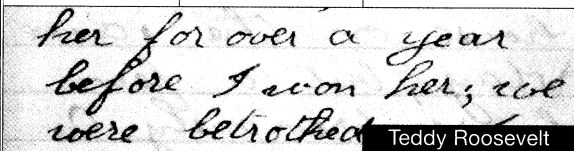 her for over a year
before I won her; we
were betrothed
Teddy Roosevelt